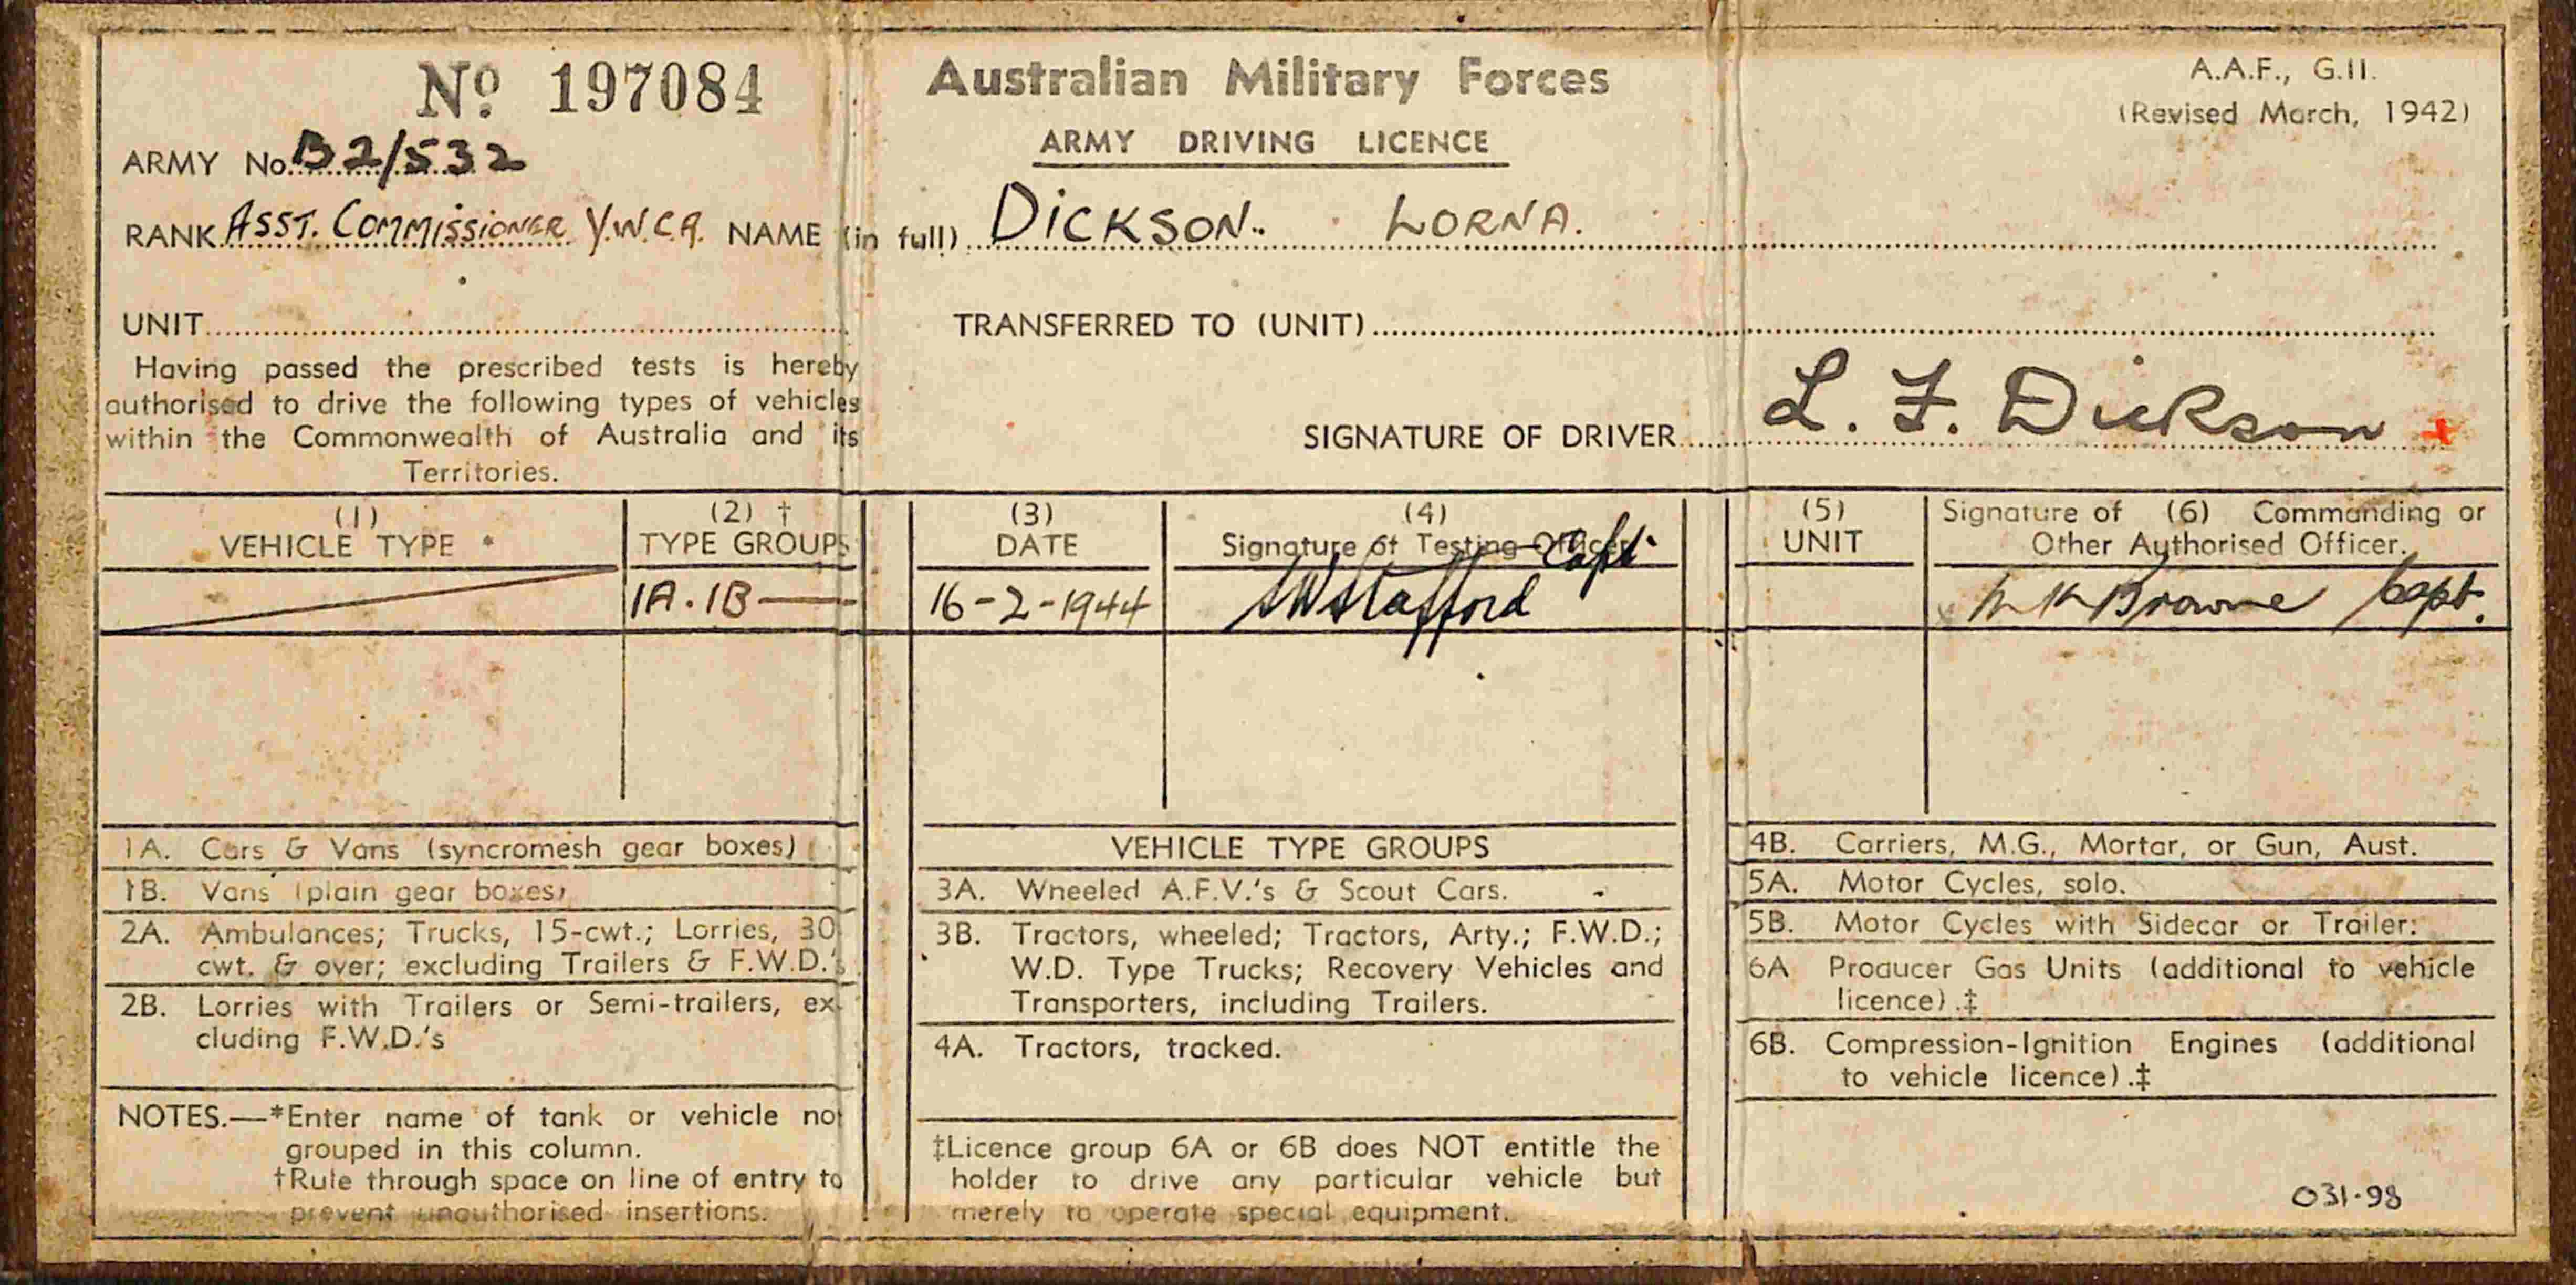 Nº 197084
Australian Military Forces
A.A.F., G.II.
(Revised March, 1942)
ARMY DRIVING LICENCE
ARMY No. B2/532
RANK ASST. COMMISSIONER Y.W.C.A. NAME (in full) DICKSON. LORNA.
UNIT TRANSFERRED TO (UNIT)
Having passed the prescribed tests is hereby
authorised to drive the following types of vehicles
within the Commonwealth of Australia and its
Territories.
SIGNATURE OF DRIVER L. F. Dickson +
(1)
VEHICLE TYPE *
(2) †
TYPE GROUPS
(3)
DATE
(4)
Signature of Testing Officer
(5)
UNIT
Signature of (6) Commanding or
Other Authorised Officer.
1A.1B—
16-2-1944
Stafford Capt.
Browne Capt.
1A. Cars & Vans (syncromesh gear boxes)
1B. Vans (plain gear boxes)
2A. Ambulances; Trucks, 15-cwt.; Lorries, 30
cwt. & over; excluding Trailers & F.W.D.'s
2B. Lorries with Trailers or Semi-trailers, ex-
cluding F.W.D.'s
NOTES.—*Enter name of tank or vehicle not
grouped in this column.
†Rule through space on line of entry to
prevent unauthorised insertions.
VEHICLE TYPE GROUPS
3A. Wheeled A.F.V.'s & Scout Cars.
3B. Tractors, wheeled; Tractors, Arty.; F.W.D.;
W.D. Type Trucks; Recovery Vehicles and
Transporters, including Trailers.
4A. Tractors, tracked.
‡Licence group 6A or 6B does NOT entitle the
holder to drive any particular vehicle but
merely to operate special equipment.
4B. Carriers, M.G., Mortar, or Gun, Aust.
5A. Motor Cycles, solo.
5B. Motor Cycles with Sidecar or Trailer:
6A Producer Gas Units (additional to vehicle
licence).‡
6B. Compression-Ignition Engines (additional
to vehicle licence).‡
031.98